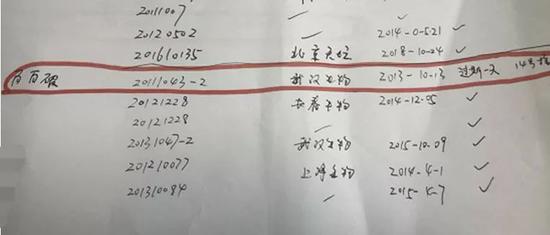 20111007 〃 ✓
20120502 〃 2014-05-21 ✓
201610135 北京天坛 2018-10-24 ✓
百百破 20111043-2 武汉生物 2013-10-13 过期一天 14号
20121228 长春生物 2014-12-05 ✓
20121228 〃 ✓
20131047-2 武汉生物 2015-10-09 ✓
201210077 上海生物 2014-4-1 ✓
201310084 〃 2015-4-7 ✓